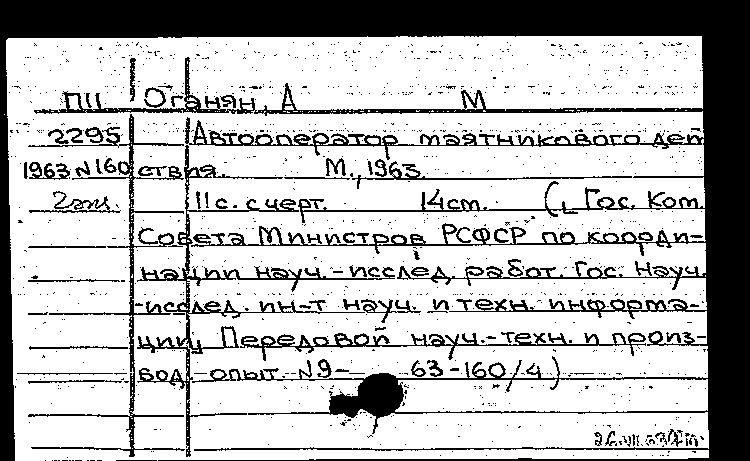 П11 Оганян, А М
2295 Автооператор маятникового дей
1963 N 160 ствия. М., 1963.
2 экз. 11 с. с черт. 14 см. (L Гос. Ком.
Совета Министров РСФСР по коорди-
нации науч.-исслед. работ. Гос. Науч.
-исслед. ин-т науч. и техн. информа-
ции, Передовой науч.-техн. и произ-
вод. опыт. N9- 63-160/4)